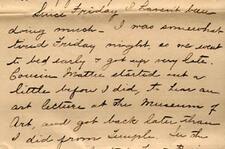 Since Friday I haven't been
doing much — I was somewhat
tired Friday night, so we went
to bed early & got up very late.
Cousin Mattie started out a
little before I did, to hear an
art lecture at the Museum of
Art, and got back later than
I did from Temple. In the